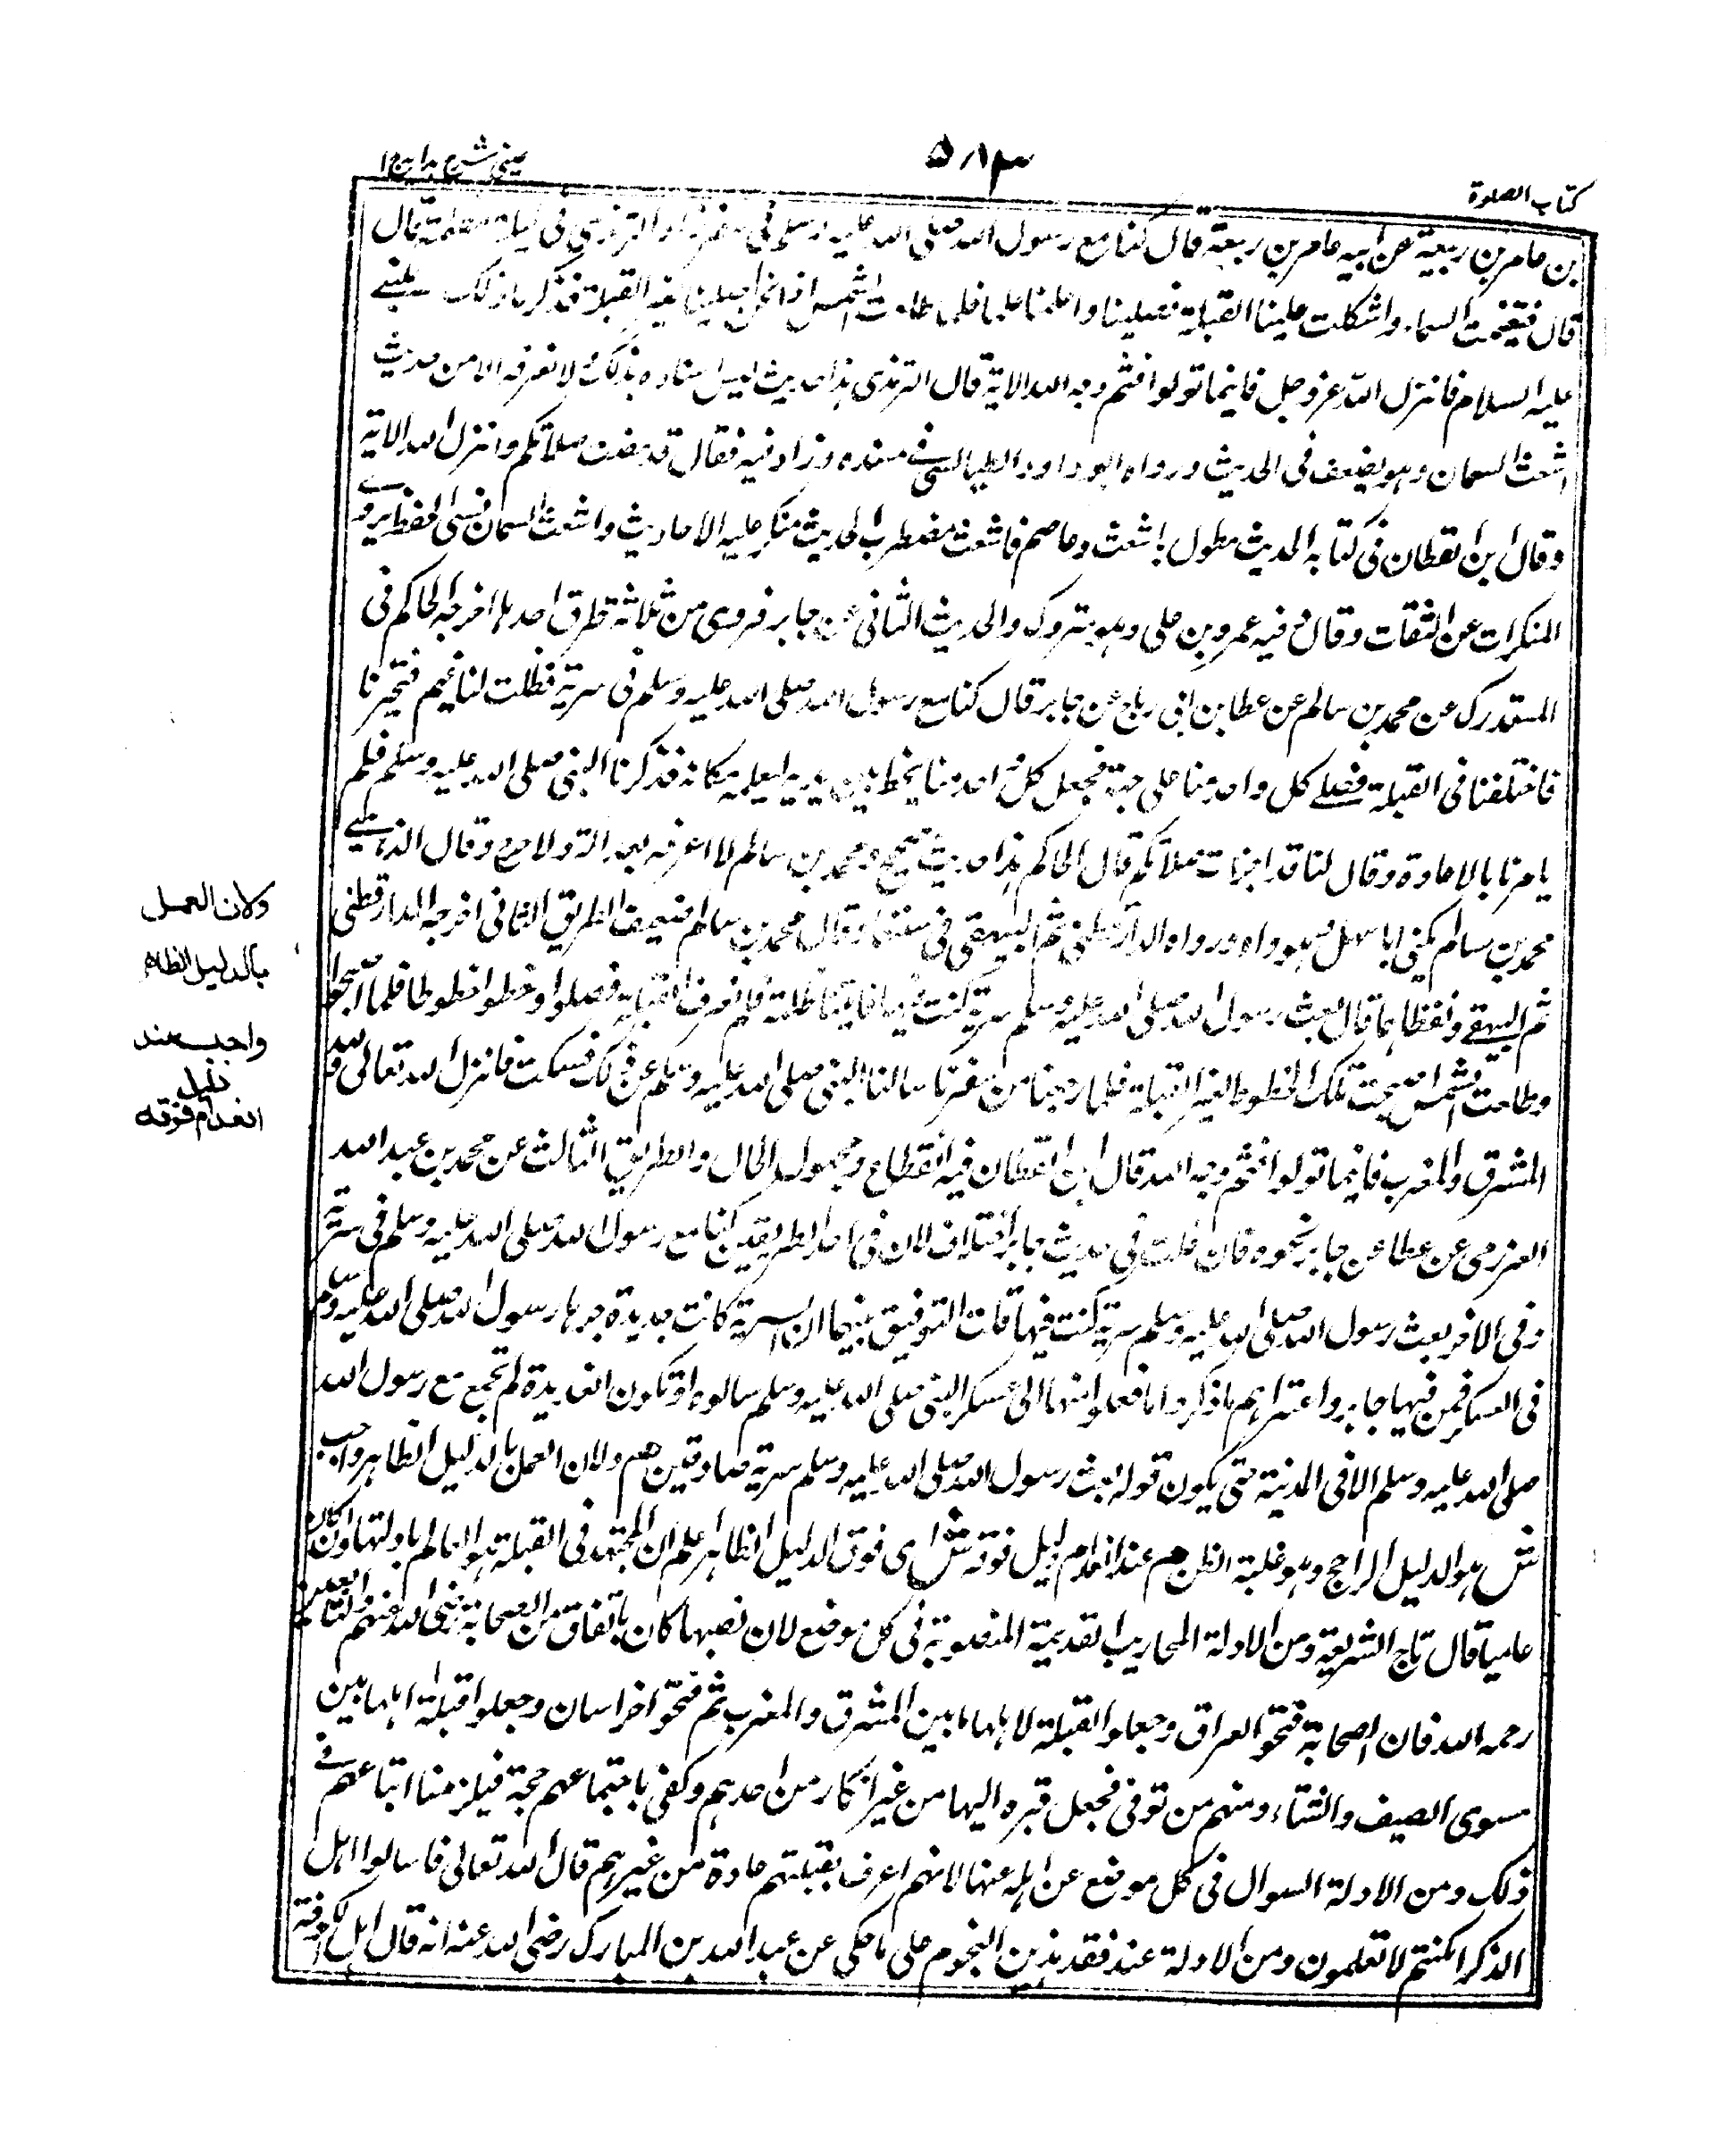 كتاب الصلوة
۵۱۳
عينى شرح هدايه ج ا
بن عامر بن ربيعة عن ابيه عامر بن ربيعة قال كنا مع رسول الله صلى الله عليه وسلم فى سفر زاد الترمذى فى ليلة مظلمة قال
قال فتغيمت السماء واشكلت علينا القبلة فصلينا واعلمنا علما فلما طلعت الشمس اذا نحن صلينا لغير القبلة فذكرنا ذلك للنبى
عليه السلام فانزل الله عز وجل فاينما تولوا فثم وجه الله الاية قال الترمذى هذا حديث ليس اسناده بذاك لا نعرفه الا من حديث
اشعث السمان وهو يضعف فى الحديث ورواه ابو داود الطيالسى فى مسنده وزاد فيه فقال قد مضت صلاتكم وانزل الله الاية
وقال ابن القطان فى كتابه الحديث معلول باشعث وعاصم فاشعث مضطرب الحديث منكر عليه الاحاديث واشعث السمان سئى الحفظ يروى
المنكرات عن الثقات وقال فيه عمرو بن على وهو متروك والحديث الثانى عن جابر فروى من ثلاثة طرق احدها اخرجه الحاكم فى
المستدرك عن محمد بن سالم عن عطا بن ابى رباح عن جابر قال كنا مع رسول الله صلى الله عليه وسلم فى سرية فظلت لنا غيم فتحيرنا
فاختلفنا فى القبلة فصلى كل واحد منا على حدة فجعل كل احد منا يخط بين يديه ليعلم مكانه فذكرنا النبى صلى الله عليه وسلم فلم
يامرنا بالاعادة وقال لنا قد اجزات صلاتكم قال الحاكم هذا حديث صحيح ومحمد بن سالم لا اعرفه بعدالة ولا جرح وقال الذهبى
محمد بن سالم يكنى ابا سهل وهو واه ورواه الدارقطنى ثم البيهقى فى سننهما وقال محمد بن سالم ضعيف الطريق الثانى اخرجه الدارقطنى
ثم البيهقى ولفظهما قال بعث رسول الله صلى الله عليه وسلم سرية كنت فيها فاصابتنا ظلمة فلم نعرف القبلة فصلوا وخطوا خطوطا فلما اصبحوا
وطلعت الشمس اصبحت تلك الخطوط لغير القبلة فلما رجعنا من سفرنا سالنا النبى صلى الله عليه وسلم عن ذلك فسكت فانزل الله تعالى ولله
المشرق والمغرب فاينما تولوا فثم وجه الله قال ابن القطان فيه انقطاع ومجهول الحال والطريق الثالث عن محمد بن عبد الله
العزرمى عن عطا عن جابر نحوه فان قلت فى حديث جابر اختلاف لان فى احد الطريقين كنا مع رسول الله صلى الله عليه وسلم فى سرية
وفى الاخر بعث رسول الله صلى الله عليه وسلم سرية كنت فيها قلت التوفيق بينهما ان السرية كانت جديدة جرها رسول الله صلى الله عليه وسلم
فى العسكر فمن فيها جابر واعتراهم ما ذكروا ما فعلوا انتهيا الى عسكر النبى صلى الله عليه وسلم سالوه او تكون الجديدة لم تجمع مع رسول الله
صلى الله عليه وسلم الا فى المدينة حتى يكون قوله بعث رسول الله صلى الله عليه وسلم سرية صادقين هم ولان العمل بالدليل الظاهر واجب
ش هو الدليل الراجح وهو غلبة الظن هم عند انعدام دليل فوقه ش اى فوق الدليل الظاهر علم ان المجتهد فى القبلة هو العالم بادلتها وان كان
عاميا قال تاج الشريعة ومن الادلة المحاريب القديمة المنصوبة فى كل موضع لان نصبها كان باتفاق من الصحابة رضى الله عنهم والتابعين
رحمه الله فان الصحابة فتحوا العراق وجعلوا القبلة لاهلها ما بين المشرق والمغرب ثم فتحوا خراسان وجعلوا قبلة اهلها بين
مسوى الصيف والشتاء ومنهم من توفى فجعل قبره اليها من غير انكار من احدهم وكفى باجتماعهم حجة فيلزمنا اتباعهم فى
ذلك ومن الادلة السوال فى كل موضع عن اهله عنها لانهم اعرف بقبلتهم عادة من غيرهم قال الله تعالى فاسالوا اهل
الذكر ان كنتم لا تعلمون ومن الادلة عند فقد هذين النجوم على ما حكى عن عبد الله بن المبارك رضى الله عنه انه قال اهل الكوفة
ولان العمل
بالدليل الظاهر
واجب عند
دليل
انعدام فوقه